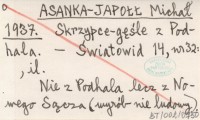 ASANKA-JAPOŁŁ Michał
1937. Skrzypce-gęśle z Pod-
hala. - Światowid 14, nr 32:
, il.
Nie z Podhala lecz z No-
wego Sącza (wyrób nie ludowy)